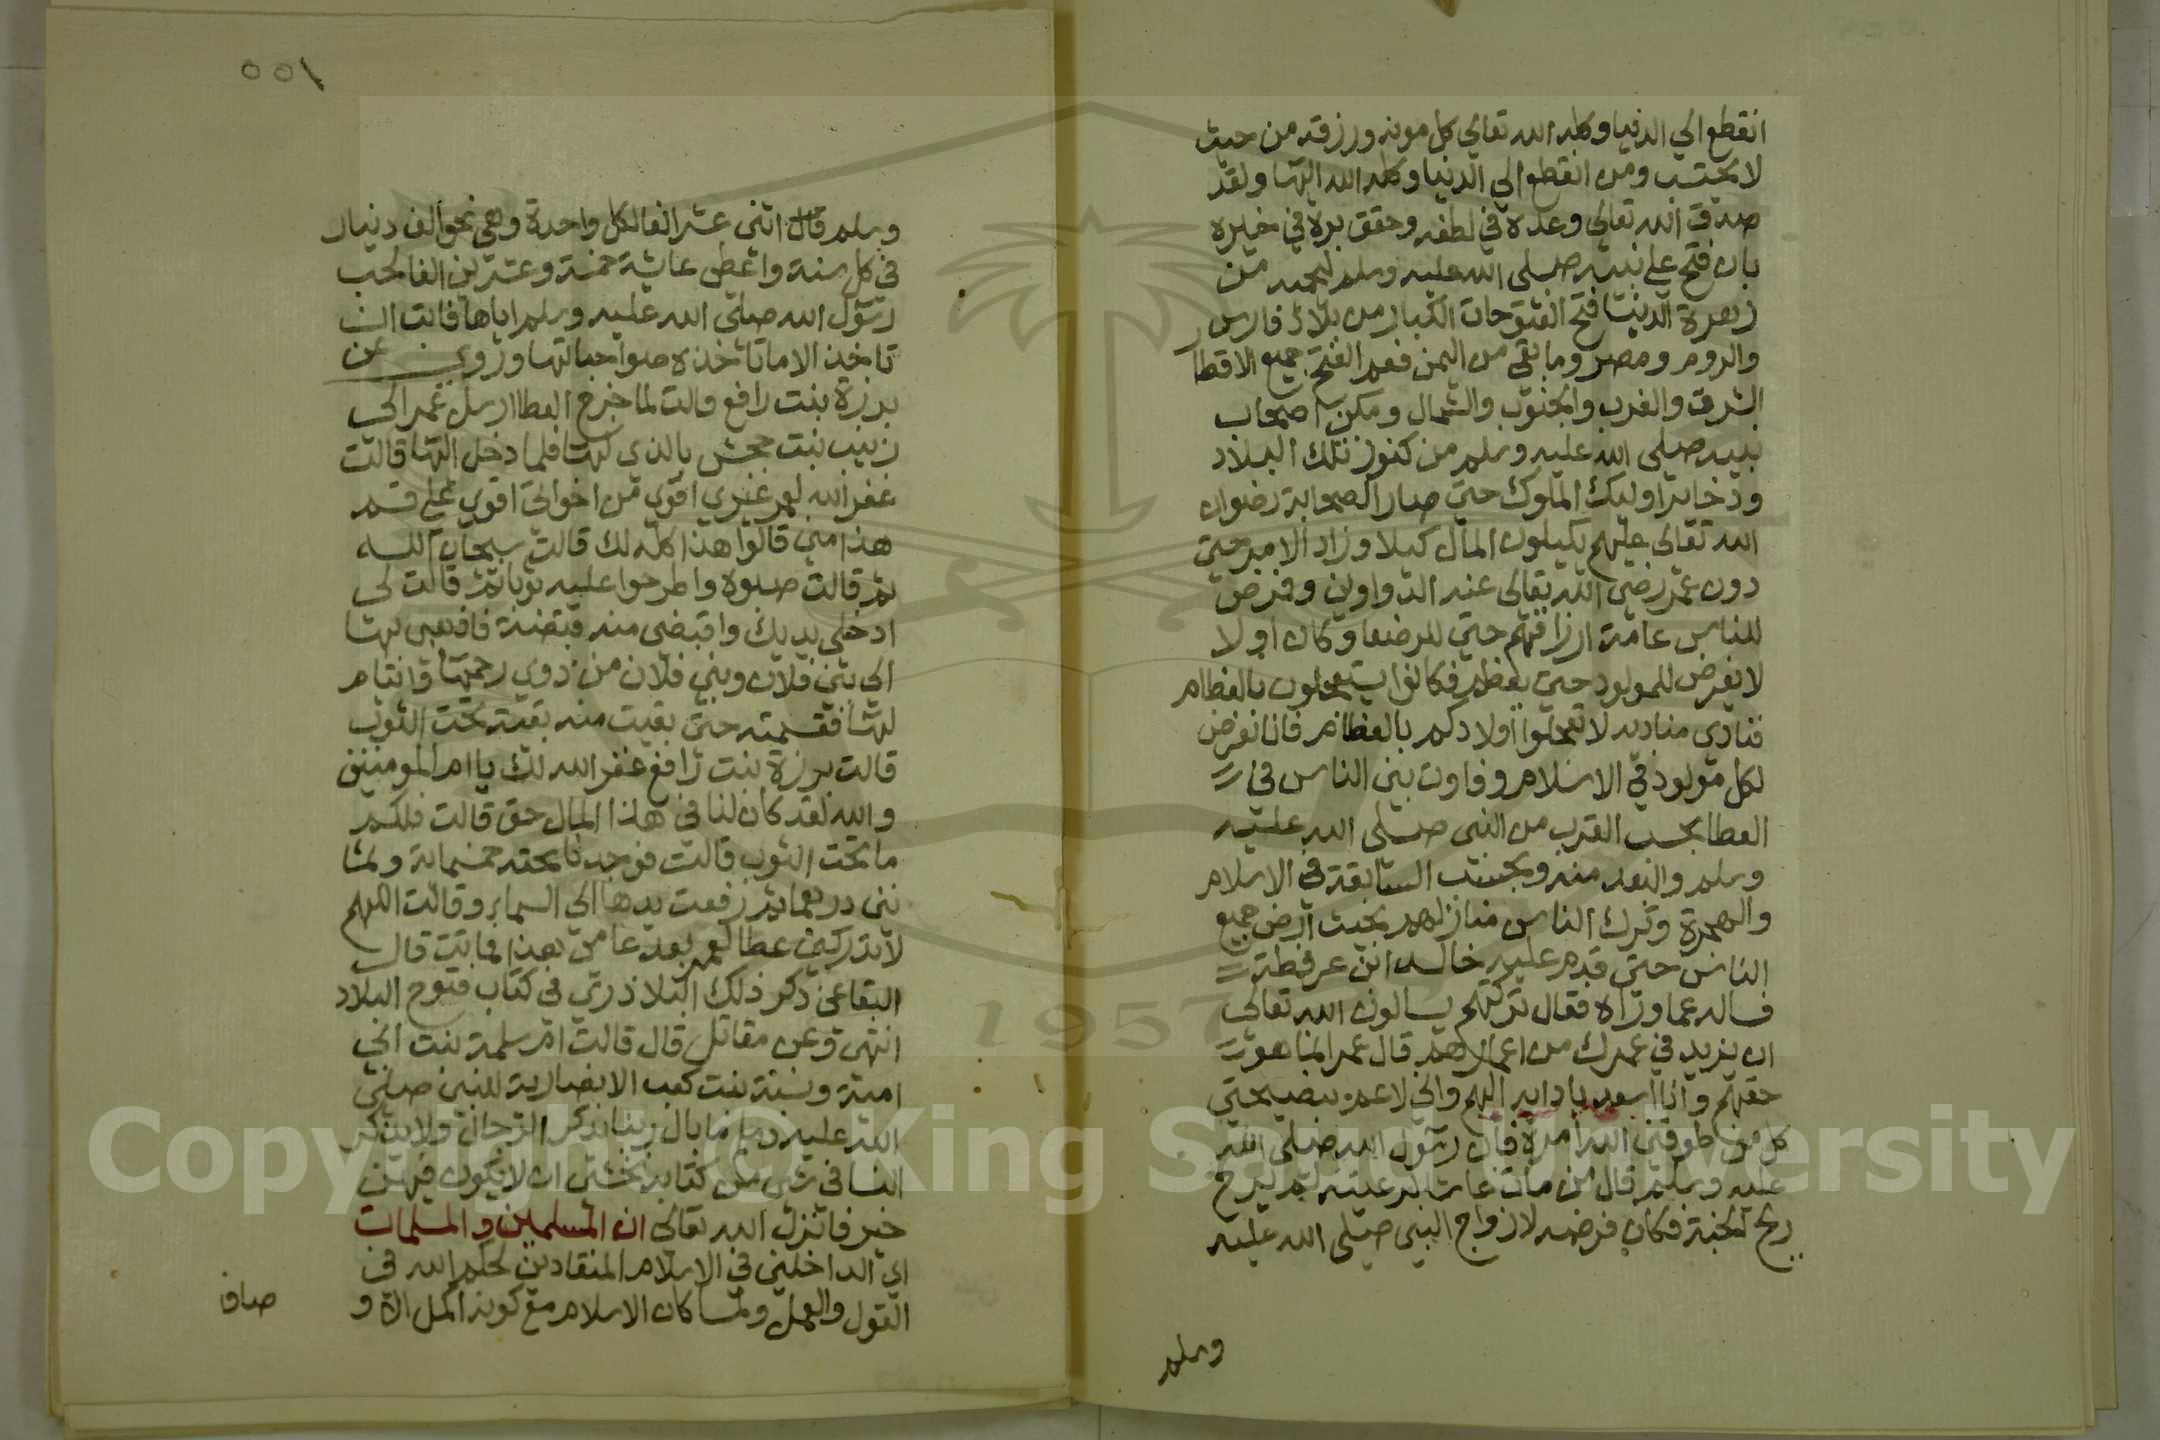 انقطع الي الدنيا وكله الله تعالي كل مونه ورزقه من حيث
لا يحتسب ومن انقطع الي الدنيا وكله الله اليها ولقد
صدق الله تعالي وعده في لطفه وحقق بره في خيره
بان فتح علي نبيه صلي الله عليه وسلم من
زهرة الدنيا فتح الفتوحات الكبار من بلاد فارس
والروم ومصر وما بقي من اليمن فعم الفتح جميع الاقطار
الشرق والغرب والجنوب والشمال ومكن اصحاب
نبيه صلي الله عليه وسلم من كنوز تلك البلاد
وذخاير اوليك الملوك حتي صار الصحابة رضوان
الله تعالي عليهم يكيلون المال كيلا وزاد الامر حتي
دون عمر رضي الله تعالي عنه الدواوين وفرض
للناس عامة ارزاقهم حتي للرضعا وكان اولا
لا يفرض للمولود حتي يفطم فكانوا يستعجلون بالفطام
فنادي مناديه لا تعجلوا اولادكم بالفطام فانا نفرض
لكل مولود في الاسلام وفاوت بين الناس في
العطا بحسب القرب من النبي صلي الله عليه
وسلم والبعد منه وبحسب السابقة في الاسلام
والهجرة ونزل الناس منازلهم بحيث ارضي جميع
الناس حتي قدم عليه خالد ابن عرفطة
فساله عما وراه فقال تركتهم يسالون الله تعالي
ان يزيد في عمرك من اعمارهم قال عمر انما هو
حقهم وانا اسعد بادايه اليهم واني لاعم بنصيحتي
كل من طوقني الله امره فان رسول الله صلي الله
عليه وسلم قال من مات غاشا لرعيته لم يرح
ريح الجنة فكان فرضه لازواج النبي صلي الله عليه
وسلم
١٥٥
وسلم قال اثني عشر الفا لكل واحدة وهي نحو الف دنيار
في كل سنة واعطي عايشة خمسة وعشرين الفا لحب
رسول الله صلي الله عليه وسلم اياها فابت ان
تاخذ الا ما تاخذه صواحباتها وروي عن
برزة بنت رافع قالت لما خرج العطا ارسل عمر الي
زينب بنت جحش بالذي لها فلما دخل اليها قالت
غفر الله لعمر غيري من اخواتي اقوي علي قسم
هذا مني قالوا هذا كله لك قالت سبحان الله
ثم قالت صبوه واطرحوا عليه ثوبا ثم قالت لي
ادخلي يديك واقبضي منه قبضة فاذهبي بها
الي بني فلان وبني فلان من ذوي رحمها وايتام
لها فقسمته حتي بقيت منه بقية تحت الثوب
قالت برزة بنت رافع غفر الله لك يا ام المومنين
والله لقد كان لنا في هذا المال حق قالت فلكم
ما تحت الثوب قالت فوجدنا تحته خمسماية وثما
نين درهما ثم رفعت يدها الي السماء وقالت اللهم
لا يدركني عطا لعمر بعد عامي هذا فماتت قال
البقاعي ذكر ذلك البلاذري في كتاب فتوح البلاد
انتهي وعن مقاتل قال قالت ام سلمة بنت ابي
امية ونسيبة بنت كعب الانصارية للنبي صلي
الله عليه وسلم ما بال ربنا يذكر الرجال ولا يذكر
النسا في شي من كتابه نخشي ان لا يكون فيهن
خير فانزل الله تعالي ان المسلمين والمسلمات
اي الداخلين في الاسلام المنقادين لحكم الله في
القول والعمل ولما كان الاسلام مع كونه اكمل
صاف
1957
Copyright © King Saud University